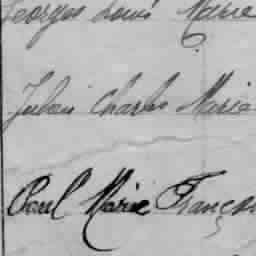 Georges Louis Marie
Julien Charles Maria
Paul Marie Franço